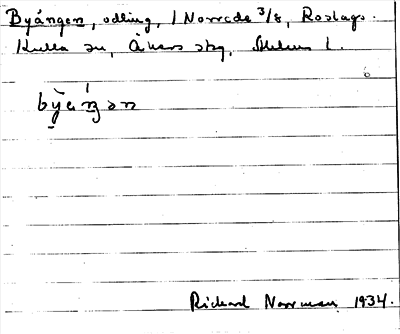 Byángen, odling, 1 Norrede 3/8, Roslags-
Kulla sn, Åkers skg, Sthlms l.
bỳáŋən
Richard Norrman 1934.